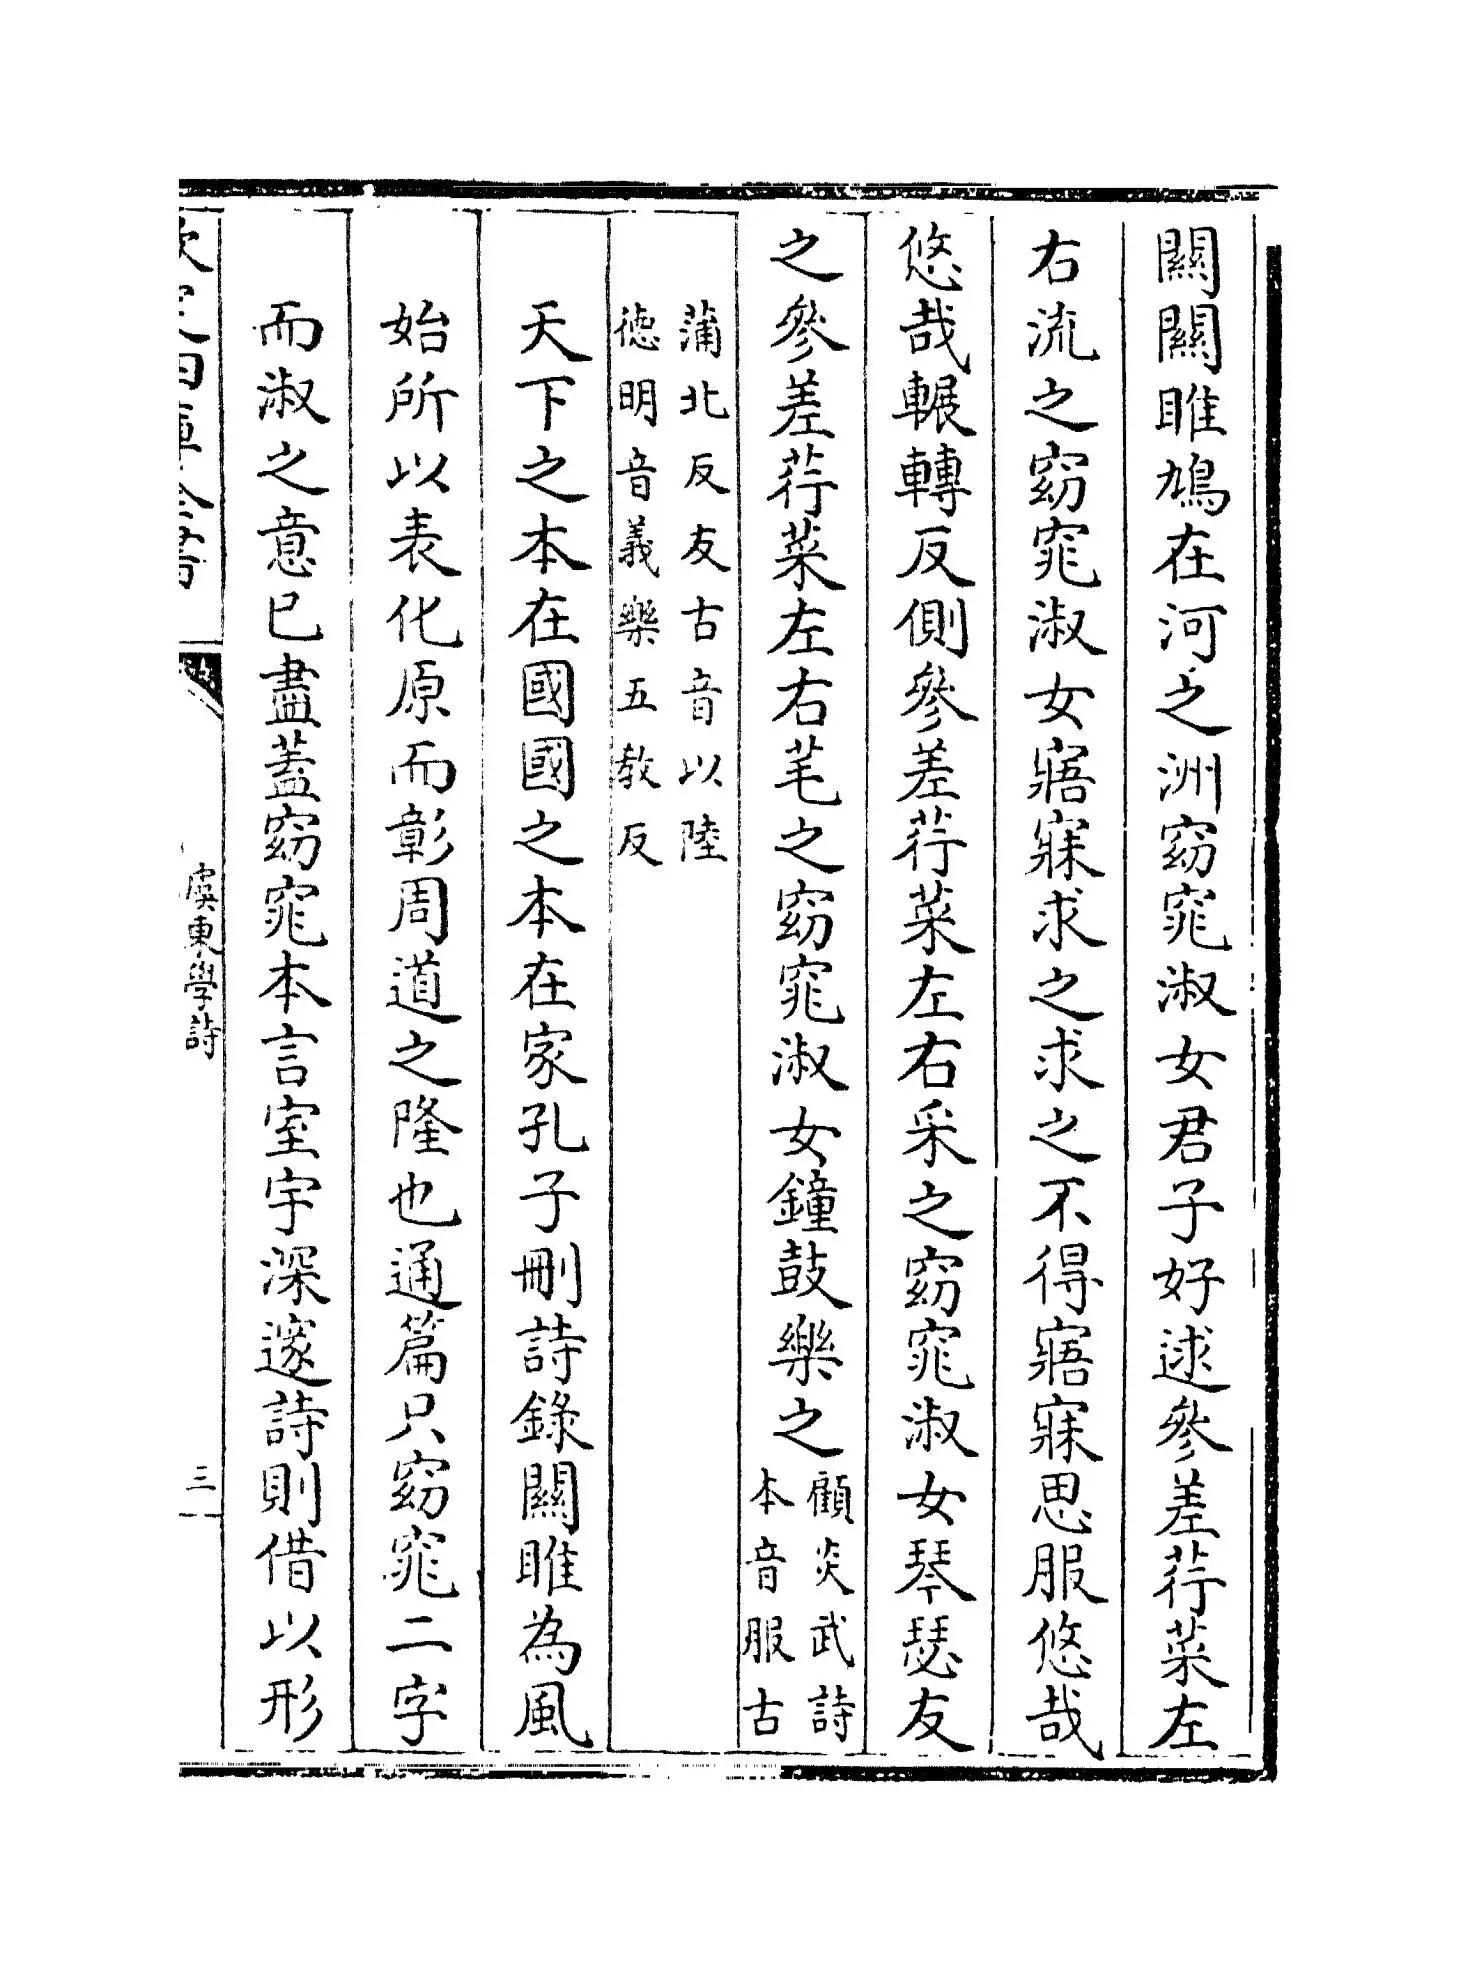 關關雎鳩在河之洲窈窕淑女君子好逑參差荇菜左
右流之窈窕淑女寤寐求之求之不得寤寐思服悠哉
悠哉輾轉反側參差荇菜左右采之窈窕淑女琴瑟友
之參差荇菜左右芼之窈窕淑女鐘鼓樂之
顧炎武詩
本音服古
蒲北反友古音以陸
德明音義樂五教反
天下之本在國國之本在家孔子刪詩錄關雎為風
始所以表化原而彰周道之隆也通篇只窈窕二字
而淑之意已盡蓋窈窕本言室宇深邃詩則借以形
欽定四庫全書
虞東學詩
三